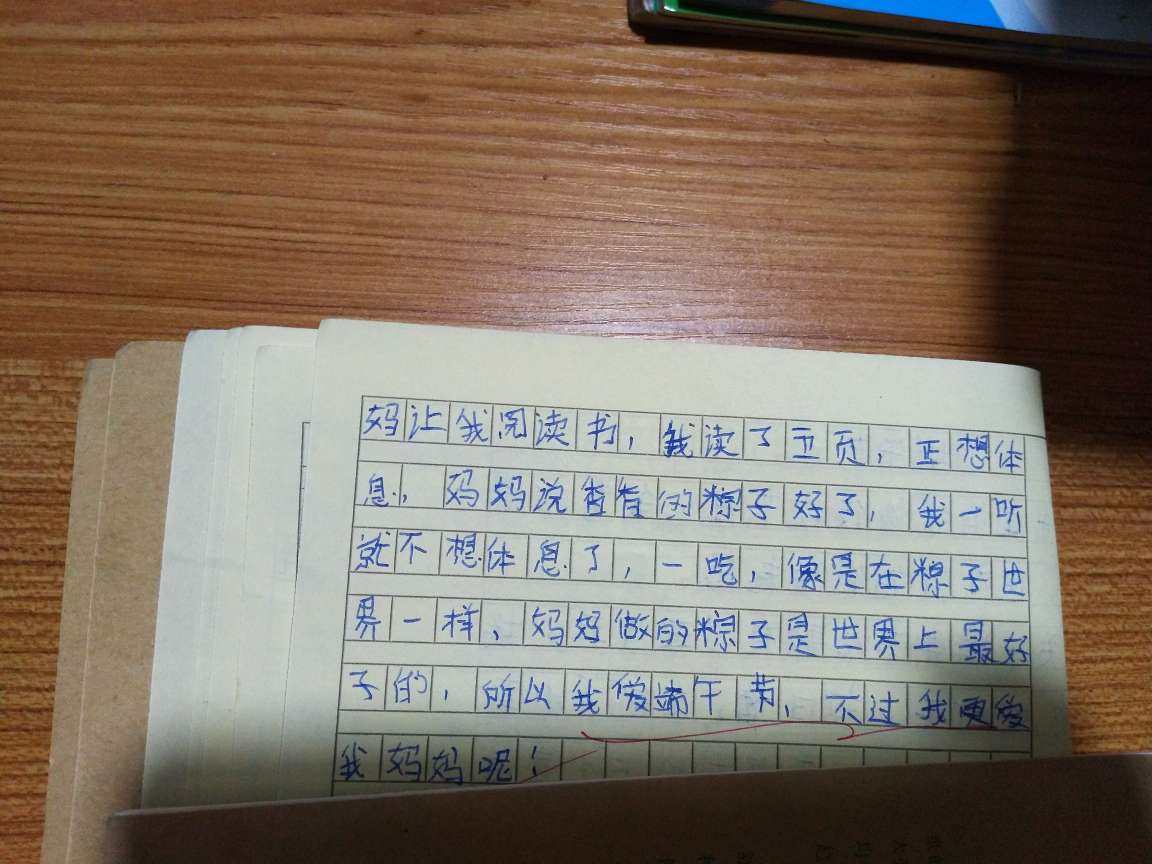 妈让我阅读书，我读了五页，正想休
息，妈妈说香香的粽子好了，我一听
就不想休息了，一吃，像是在粽子世
界一样、妈妈做的粽子是世界上最好
子的，所以我爱端午节，不过我更爱
我妈妈呢！